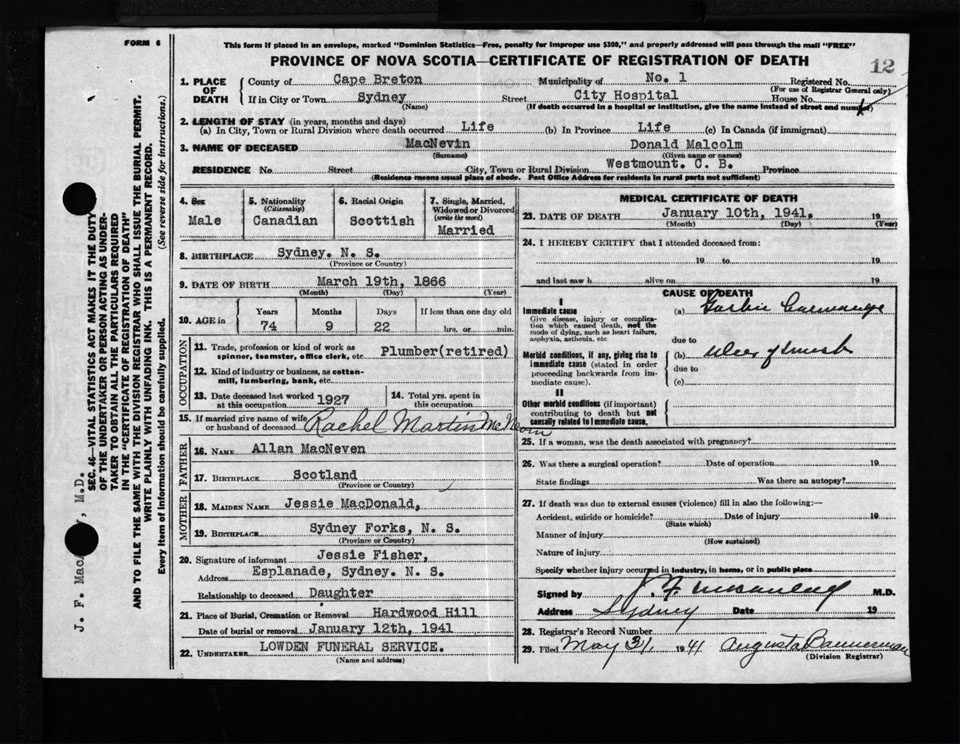 FORM 6
This form if placed in an envelope, marked "Dominion Statistics—Free, penalty for improper use $300," and properly addressed will pass through the mail "FREE"
PROVINCE OF NOVA SCOTIA—CERTIFICATE OF REGISTRATION OF DEATH
12
1. PLACE OF DEATH
County of Cape Breton Municipality of No. 1 Registered No.
(For use of Registrar General only)
If in City or Town Sydney Street City Hospital House No.
(Name) (If death occurred in a hospital or institution, give the name instead of street and number)
2. LENGTH OF STAY (in years, months and days)
(a) In City, Town or Rural Division where death occurred Life (b) In Province Life (c) In Canada (if immigrant)
3. NAME OF DECEASED MacNevin Donald Malcolm
(Surname) (Given name or names)
RESIDENCE No. Street City, Town or Rural Division Westmount. C. B. Province
(Residence means usual place of abode. Post Office Address for residents in rural parts not sufficient)
4. Sex
Male
5. Nationality
(Citizenship)
Canadian
6. Racial Origin
Scottish
7. Single, Married, Widowed or Divorced
(write the word)
Married
8. BIRTHPLACE Sydney. N. S.
(Province or Country)
9. DATE OF BIRTH March 19th, 1866
(Month) (Day) (Year)
10. AGE in
Years Months Days If less than one day old
74 9 22 hrs. or min.
OCCUPATION
11. Trade, profession or kind of work as spinner, teamster, office clerk, etc. Plumber(retired)
12. Kind of industry or business, as cotton-mill, lumbering, bank, etc.
13. Date deceased last worked at this occupation 1927
14. Total yrs. spent in this occupation
15. If married give name of wife or husband of deceased Rachel Martin
FATHER
16. NAME Allan MacNeven
17. BIRTHPLACE Scotland
(Province or Country)
MOTHER
18. MAIDEN NAME Jessie MacDonald,
19. BIRTHPLACE Sydney Forks, N. S.
(Province or Country)
20. Signature of informant Jessie Fisher,
Address Esplanade, Sydney. N. S.
Relationship to deceased Daughter
21. Place of Burial, Cremation or Removal Hardwood Hill
Date of burial or removal January 12th, 1941
22. UNDERTAKER LOWDEN FUNERAL SERVICE.
(Name and address)
MEDICAL CERTIFICATE OF DEATH
23. DATE OF DEATH January 10th, 1941, 19
(Month) (Day) (Year)
24. I HEREBY CERTIFY that I attended deceased from:
19 to 19
and last saw h alive on 19
CAUSE OF DEATH
I
Immediate cause
Give disease, injury or complication which caused death, not the mode of dying, such as heart failure, asphyxia, asthenia, etc
(a)
due to
Morbid conditions, if any, giving rise to immediate cause (stated in order proceeding backwards from immediate cause).
(b) Ulcer of
due to
(c)
II
Other morbid conditions (if important) contributing to death but not causally related to immediate cause.
25. If a woman, was the death associated with pregnancy?
26. Was there a surgical operation? Date of operation 19
State findings Was there an autopsy?
27. If death was due to external causes (violence) fill in also the following:—
Accident, suicide or homicide? Date of injury 19
(State which)
Manner of injury
(How sustained)
Nature of injury
Specify whether injury occured in industry, in home, or in public place
Signed by M.D.
Address Sydney Date 19
28. Registrar's Record Number
29. Filed May 31, 1941 Augusta Bannerman
(Division Registrar)
J. F. M.D.
SEC. 46—VITAL STATISTICS ACT MAKES IT THE DUTY
OF THE UNDERTAKER OR PERSON ACTING AS UNDER-
TAKER TO OBTAIN ALL THE PARTICULARS REQUIRED
IN THE "CERTIFICATE OF REGISTRATION OF DEATH"
AND TO FILE THE SAME WITH THE DIVISION REGISTRAR WHO SHALL ISSUE THE BURIAL PERMIT.
WRITE PLAINLY WITH UNFADING INK. THIS IS A PERMANENT RECORD.
Every item of information should be carefully supplied. (See reverse side for instructions.)